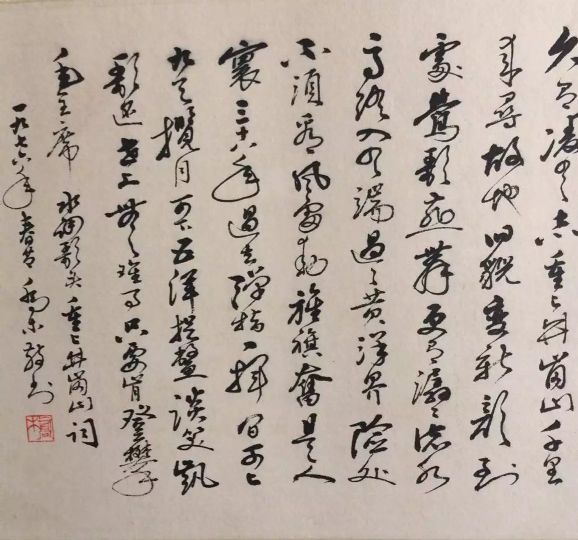 久有凌云志重上井崗山千里
来尋故地旧貌变新颜到
處鶯歌燕舞更有潺潺流水
高路入云端過了黄洋界險处
不須看風雷動旌旗奮是人
寰三十八年過去彈指一揮间可上
九天攬月可下五洋捉鳖談笑凱
歌还世上無難事只要肯登攀
毛主席 水调歌头 重上井崗山词
一九七六年春节 敬书